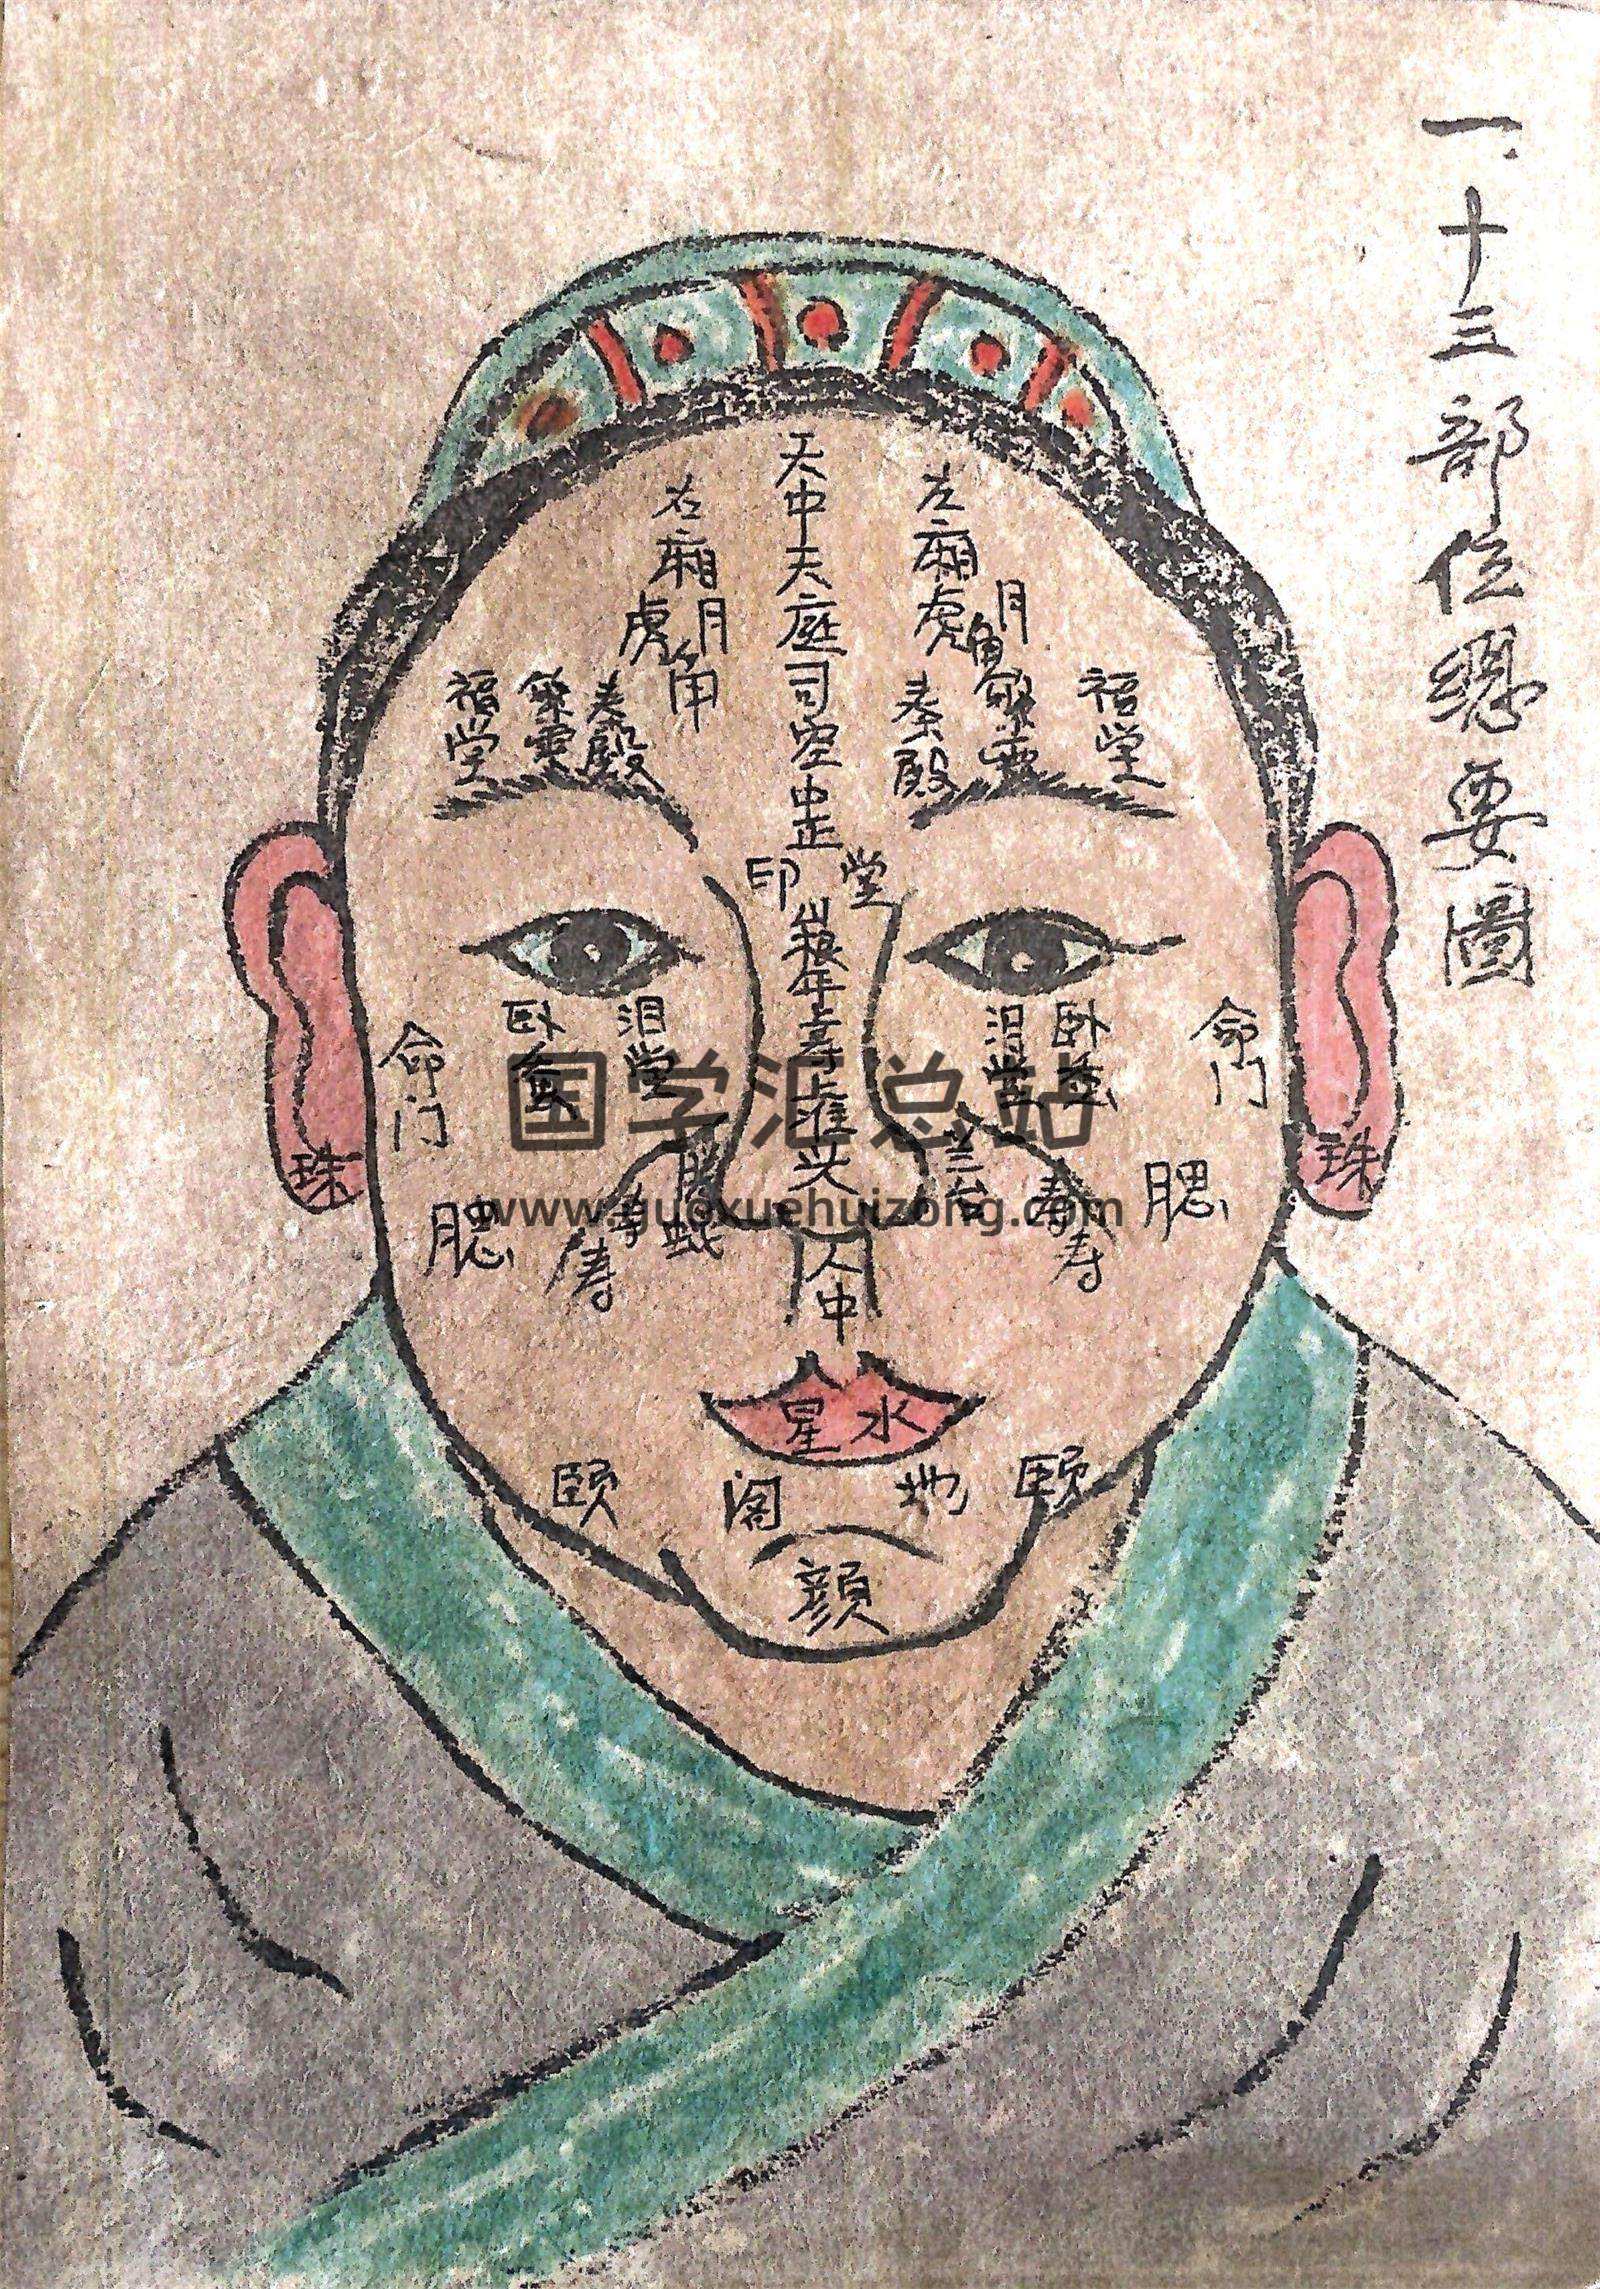 一.十三部位總要圖
天中天庭司空中正
印堂
山根年上寿上准头
人中
水星
地阁
頦
左廂
虎
月角
秦殿
福堂
右廂
虎
月角
秦殿
福堂
泪堂
卧蚕
命门
兰台
寿
寿
腮
珠
頤
泪堂
卧蚕
命门
寿
寿
腮
珠
頤
国学汇总站
www.guoxuehuizong.com